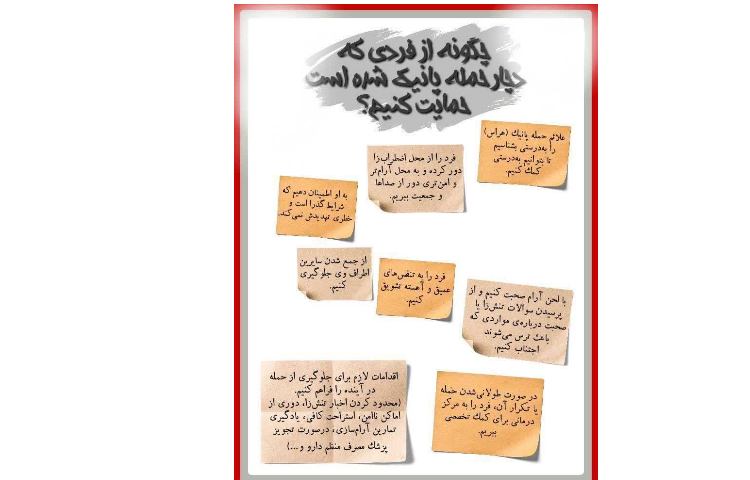 چگونه از فردی که
دچار حمله پانیک شده است
حمایت کنیم؟
علائم حمله پانیك (هراس)
را به‌درستی بشناسیم
تا بتوانیم به‌درستی
کمك کنیم.
فرد را از محل اضطراب‌زا
دور کرده و به محل آرام‌تر
و امن‌تری دور از صداها
و جمعیت ببریم.
به او اطمینان دهیم که
شرایط گذرا است و
خطری تهدیدش نمی‌کند.
با لحن آرام صحبت کنیم و از
پرسیدن سوالات تنش‌زا یا
صحبت درباره‌ی مواردی که
باعث ترس می‌شوند
اجتناب کنیم.
فرد را به تنفس‌های
عمیق و آهسته تشویق
کنیم.
از جمع شدن سایرین
اطراف وی جلوگیری
کنیم.
در صورت طولانی‌شدن حمله
یا تکرار آن، فرد را به مرکز
درمانی برای کمك تخصصی
ببریم.
اقدامات لازم برای جلوگیری از حمله
در آینده را فراهم کنیم.
(محدود کردن اخبار تنش‌زا، دوری از
اماکن ناامن، استراحت کافی، یادگیری
تمارین آرام‌سازی، درصورت تجویز
پزشك مصرف منظم دارو و...)